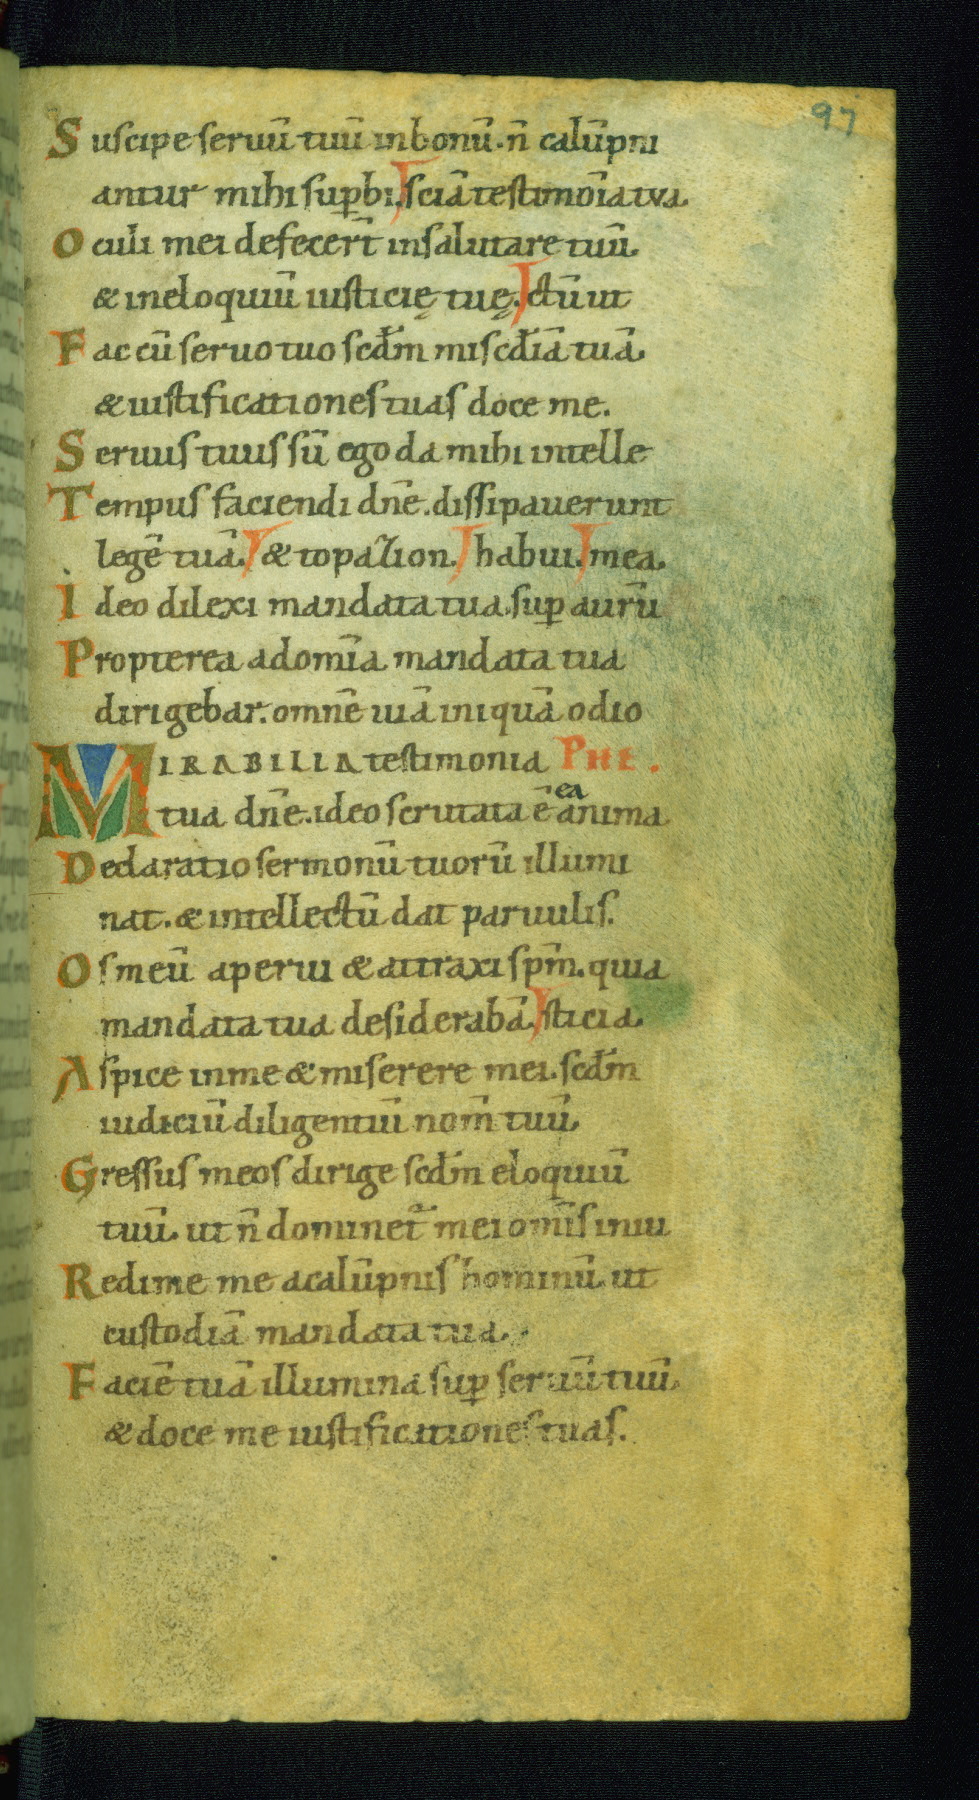 97
Suscipe seruū tuū in bonū. n̄ calūpni
antur mihi suꝑbi. sciā testimoīa tua.
Oculi mei defecer̄t in salutare tuū.
& in eloquiū iusticię tuę. ctū ut
Fac cū seruo tuo scd̄m misc̄diā tuā.
& iustificationes tuas doce me.
Seruus tuus sū ego da mihi intelle
Tempus faciendi dn̄e. dissipauerunt
legē tuā. & topazion. habui. mea.
Ideo dilexi mandata tua. suꝑ aurū
Propterea ad om̄ia mandata tua
dirigebar. omnē uiā iniquā odio
MIRABILIA testimonia PHE.
ea
tua dn̄e. ideo scrutata ē anima
Declaratio sermonū tuorū illumi
nat. & intellectū dat paruulis.
Os meū aperui & attraxi sp̄m. quia
mandata tua desiderabā. sticia.
Aspice in me & miserere mei. scd̄m
iudiciū diligentiū nom̄ tuū.
Gressus meos dirige scd̄m eloquiū
tuū. ut n̄ dominet᷑ mei om̄is iniu
Redime me a calūpnis hominū. ut
custodiā mandata tua.
Faciē tuā illumina suꝑ seruū tuū.
& doce me iustificationes tuas.